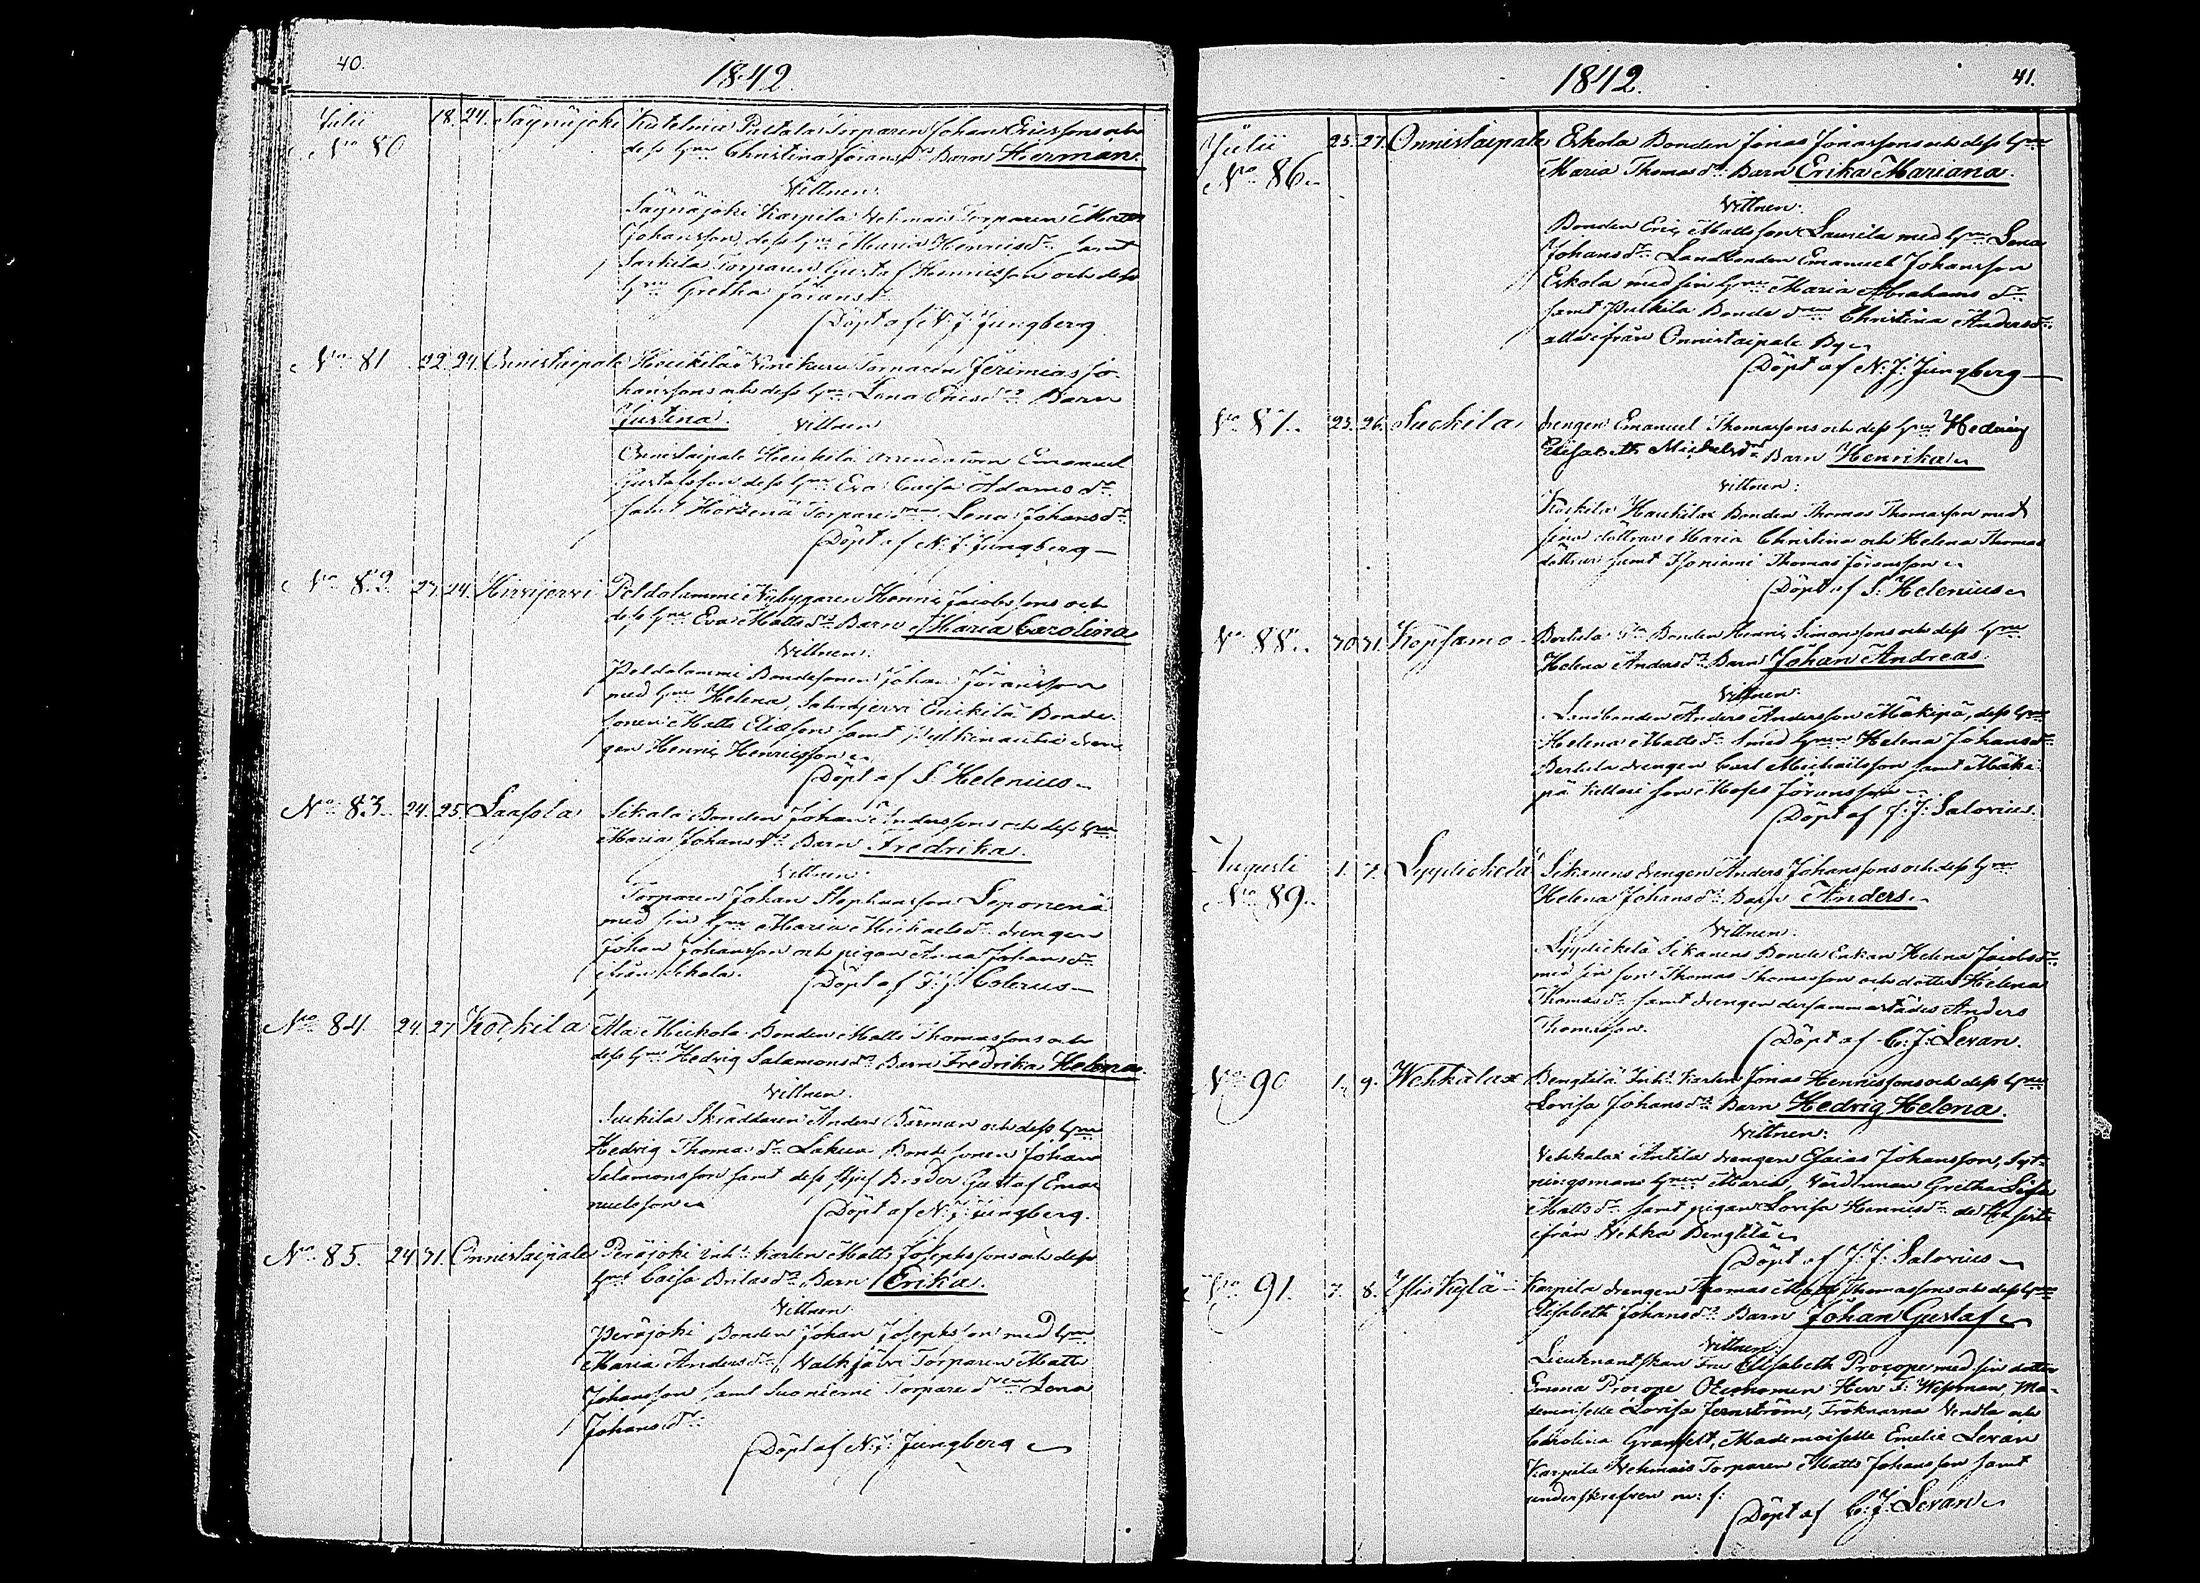 40.
1842.
Julii
No 80
18. 24. Säynäjoki
Torparen Johan Ericssons och
dess Hru Christina Göransdr Barn Herman.
Vittnen:
Säynäjoki Karpila Torparen Matts
Johansson, dess Hru Maria Henricsdr samt
Torparen Gustaf Henricsson och dess
Hru Gretha Göransdr
Döpt af N. J. Jungberg
No 81 22. 24. Onnistaipale Heickilä Jeremias Jo-
hanssons och dess Hru Lena Ericsdr Barn
Justina.
Vittnen
Onnistaipale Heickilä Arrendatorn Emanuel
Gustafsson dess Hru Eva Caisa Adamsdr
samt Torpare Lena Johansdr
Döpt af N. J. Jungberg
No 82. 23. 24. Hirvijervi Peldolammi Nybygaren Henric Jacobssons och
dess Hru Eva Mattsdr Barn Maria Carolina
Vittnen:
Peldolammi Bondesonen Johan Göransson
med Hru Helena, Erickilä Bonde-
sonen Matts Eliasson samt dren-
gen Henric Henricsson
Döpt af S. Helenius
No 83. 24. 25. Laasola Sikala Bonden Johan Anderssons och dess Hru
Maria Johansdr Barn Fredrika.
Vittnen:
Torparen Johan Stephansson Leponena
med sin Hru Maria Michaelsdr drengen
Johan Johansson och pigan Anna Johansdr
från Sikala.
Döpt af F. J. Colerus
No 84. 24. 27. Kockila Ala Mickola Bonden Matts Thomassons och
dess Hru Hedvig Salamonsdr Barn Fredrika Helena.
Vittnen.
Suckila Skräddaren Anders Bärman och dess Hru
Hedvig Thomasdr Bondesonen Johan
Salamonsson samt dess Styf Broder Gustaf Ema-
nuelsson
Döpt af N. J. Jungberg.
No 85. 24. 31. Onnistaipale Peräjoki Inhs karlen Matts Josephssons och dess
Hru Caisa Britasdr Barn Erika.
Vittnen
Peräjoki Bonden Johan Josephsson med Hru
Maria Andersdr, Valkjärvi Torparen Matts
Johansson samt Suoniemi Torpare Lena
Johansdr
Döpt af N. J. Jungberg
1842.
41.
Julii
No 86.
25. 27. Onnistaipale Eskola Bonden Jonas Jonassons och dess Hru
Maria Thomasdr Barn Erika Mariana.
Vittnen:
Bonden Eric Mattsson Laurila med Hru Lena
Johansdr Landbonden Emanuel Johansson
Eskola med sin Hru Maria Abrahamsdr
samt Bonde Christina Andersdr
alla ifrån Onnistaipale By
Döpt af N. J. Jungberg
No 87. 25. 26. Suckila drengen Emanuel Thomassons och dess Hru Hedvig
Elisabeth Michelsdr Barn Henrika
Vittnen:
Haukila Bonden Thomas Thomasson med
sina döttrar Maria Christina och Helena Thomas
döttrar samt Thomas Göransson
Döpt af S. Helenius
No 88. 30. 31. Köpsamo Bertila Bonden Henric Simonssons och dess Hru
Helena Andersdr Barn Johan Andreas.
Vittnen:
Landbonden Anders Andersson Mäkipä, dess Hru
Helena Mattsdr med Hrun Helena Johansdr
Bertila drengen Carl Michaelsson samt Mäki-
pä son Moses Göransson
Döpt af J. J. Salovius.
Augusti
No 89.
1. 7. Lyydickelä Sikanens drengen Anders Johanssons och dess Hru
Helena Johansdr Barn Anders.
Vittnen.
Lyydickelä Sikanens Bonde Enkan Helena Jacobsdr
med sin son Thomas Thomasson och dotter Helena
Thomasdr samt drengen dersammastädes Anders
Thomasson.
Döpt af C. J. Levan.
No 90 1. 9. Wehkalax Bengtilä Inhs Karlen Jonas Henricssons och dess Hru
Lovisa Johansdr Barn Hedvig Helena.
Vittnen:
Vehkalax Antila drengen Esaias Johansson, Syt-
ningsmans Hrun Maria, Värdinnan Gretha Lisa
Mattsdr samt pigan Lovisa Henricsdr
ifrån Vehka Bengtilä
Döpt af J. J. Salovius
No 91. 7. 8. Yliskylä Karpila drengen Thomas Thomassons och dess Hru
Elisabeth Johansdr Barn Johan Gustaf
Vittnen
Lieutnantskan Fru Elisabeth Procope med sin dotter
Emma Procope Herr F. Wessman, Ma-
demoiselle Lovisa Jernström, Fröknarna Vendla och
Carolina Granfelt, Mademoiselle Emelie Levan
Karpila Torparen Matts Johansson samt
underskrefven m: f:
Döpt af C. J. Levan